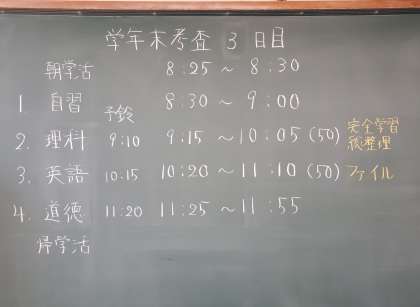 学年末考査 3日目
朝学活 8:25 ~ 8:30
1. 自習 8:30 ~ 9:00
予鈴
2. 理科 9:10 9:15 ~ 10:05 (50) 完全学習 総整理
3. 英語 10:15 10:20 ~ 11:10 (50) ファイル
4. 道徳 11:20 11:25 ~ 11:55
帰学活